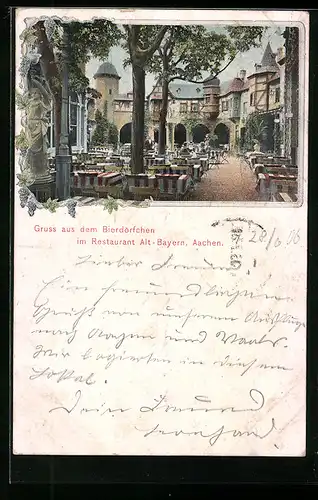 Gruss aus dem Bierdörfchen
im Restaurant Alt-Bayern, Aachen.
28/6 06
Lieber Freund!
Ein freundlichen
Gruß von unserem Ausflug
nach Aachen und Vaals.
Wir logierten in diesem
Lokal.
Dein Freund